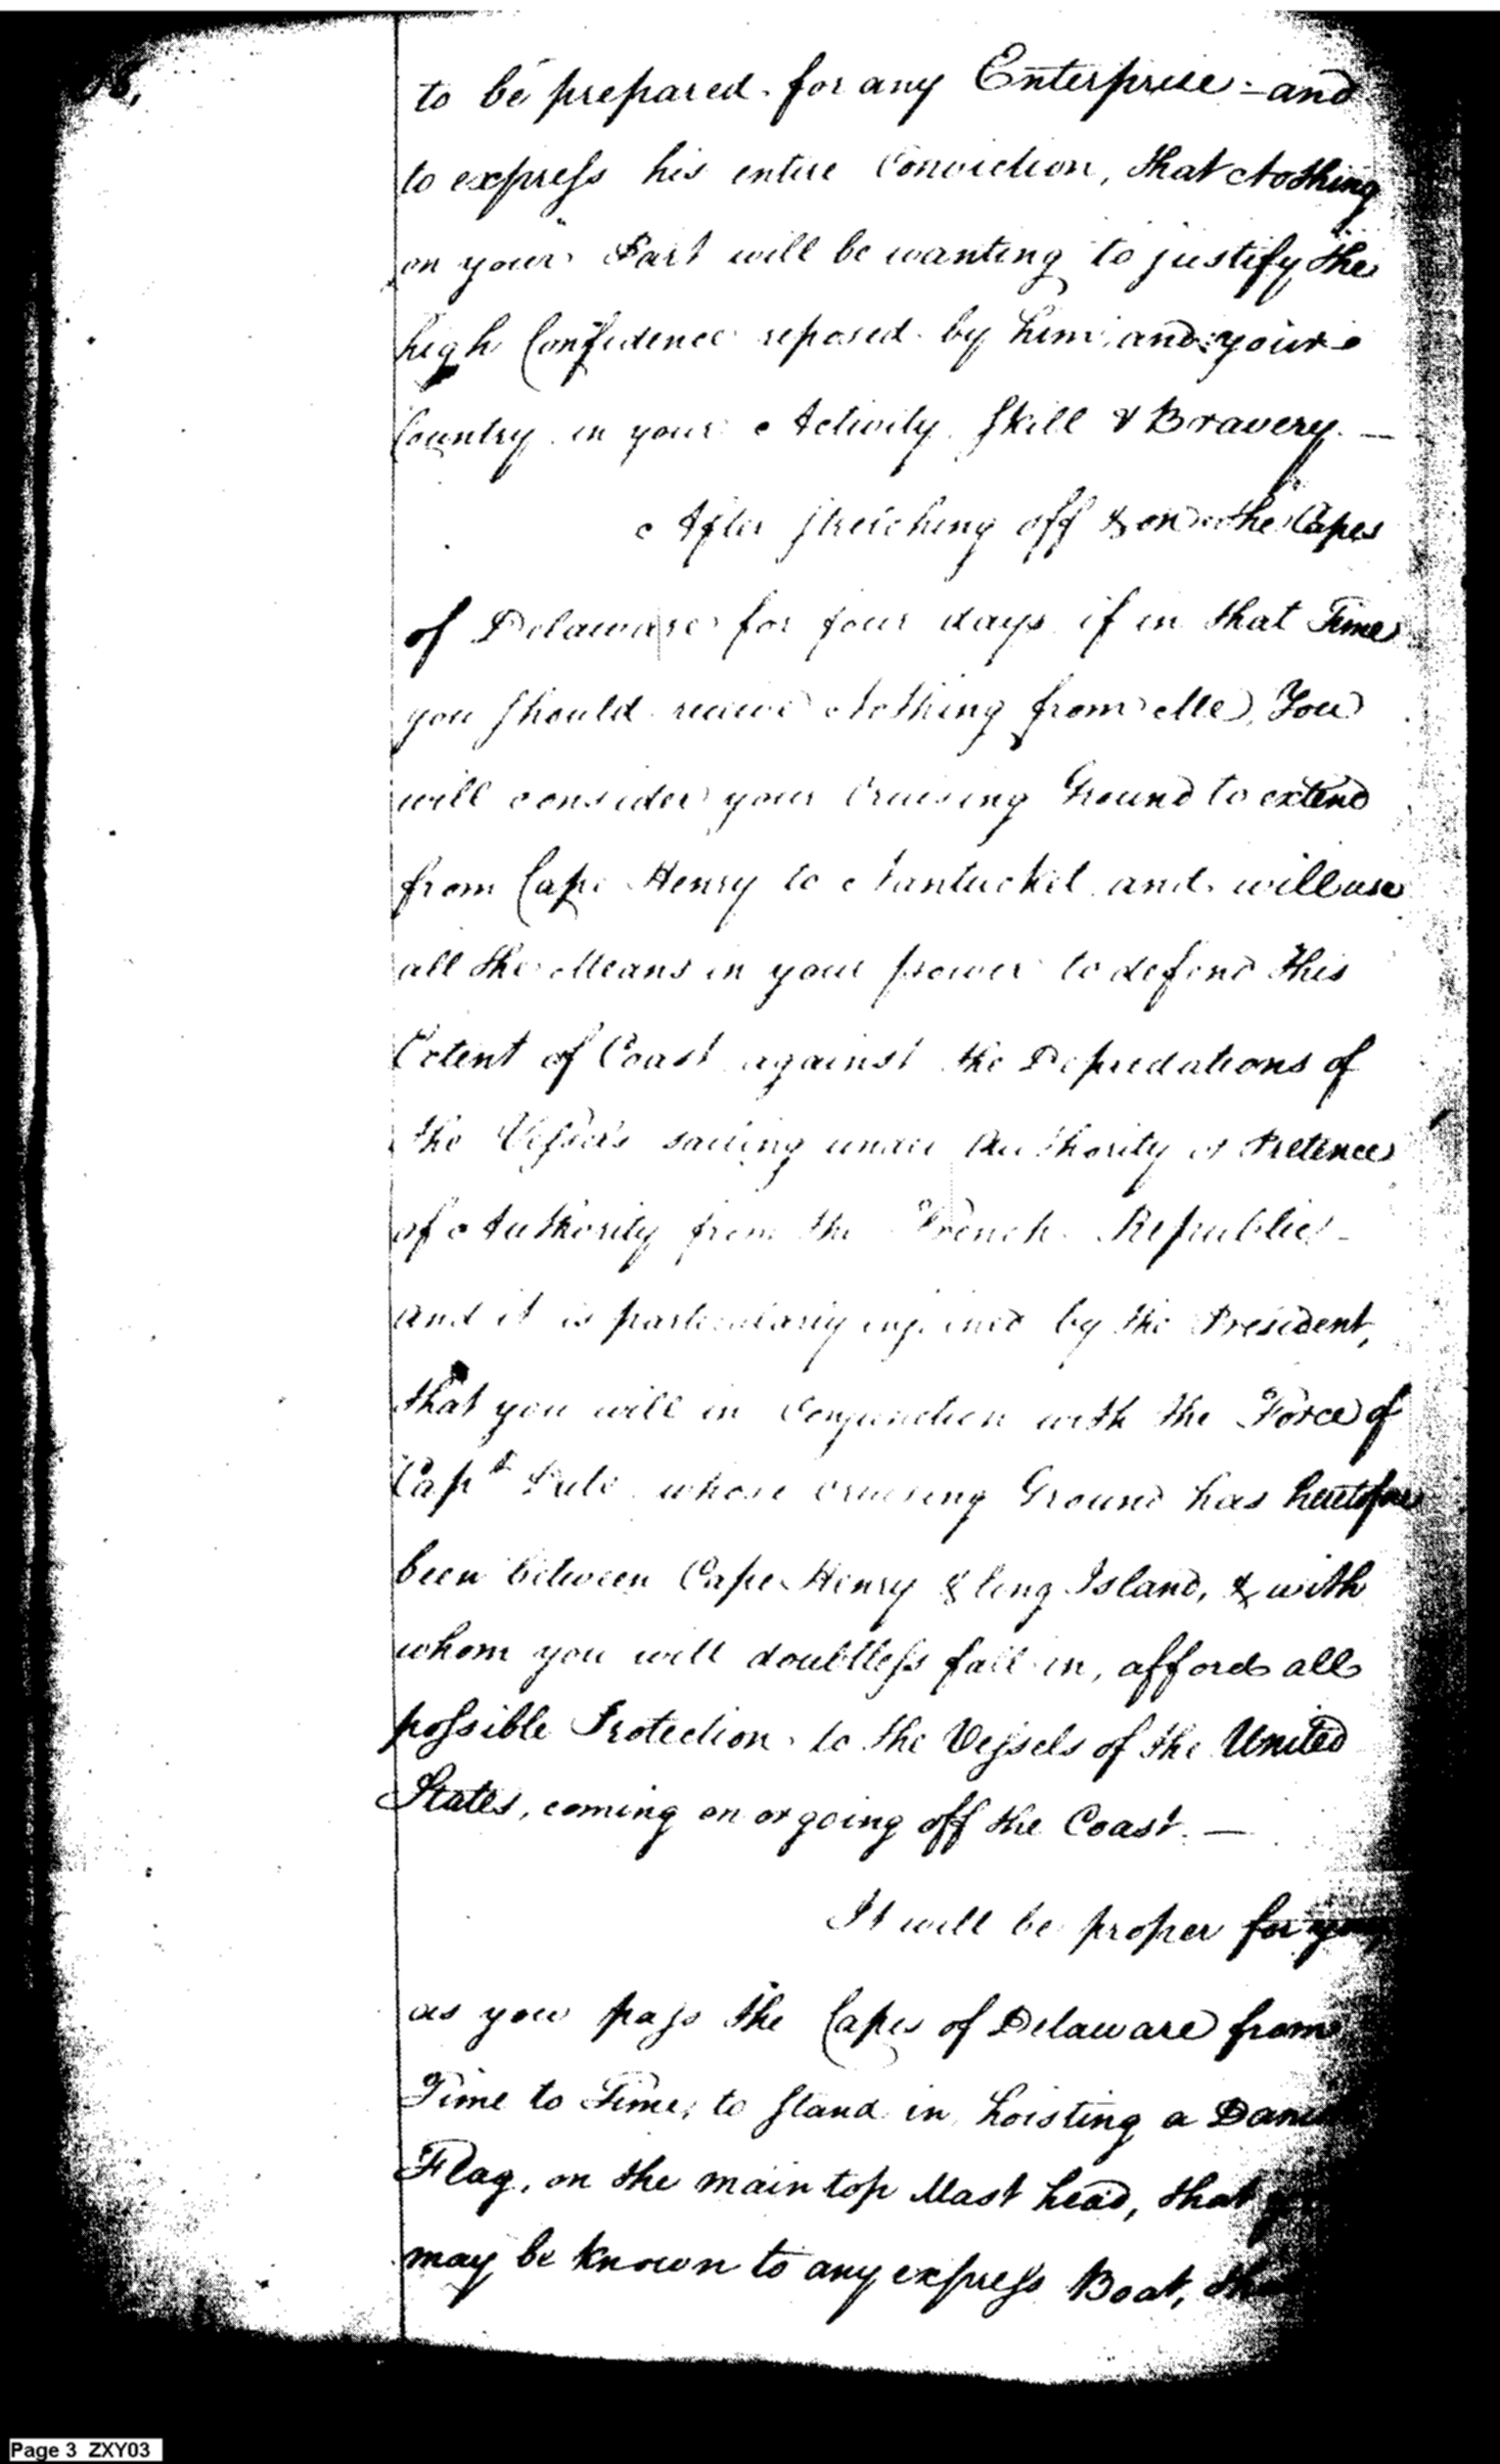 to be prepared for any Enterprise - and
to express his entire Conviction, that Nothing
on your Part will be wanting to justify the
high Confidence reposed by him and your
Country in your Activity Skill & Bravery. —
After stretching off & on the Capes
of Delaware for four days if in that Time
you should receive Nothing from Me, You
will consider your Cruising Ground to extend
from Cape Henry to Nantucket and will use
all the Means in your power to defend this
Extent of Coast against the Depredations of
the Vessels sailing under Authority or Pretence
of Authority from the French Republic -
and it is particularly enjoined by the President,
that you will in Conjunction with the Force of
Capt whose cruising Ground has heretofore
been between Cape Henry & long Island, & with
whom you will doubtless fall in, afford all
possible Protection to the Vessels of the United
States, coming on or going off the Coast. —
It will be proper for you
as you pass the Capes of Delaware from
Time to Time, to stand in hoisting a
Flag, on the main top Mast head, that
may be known to any express Boat,
Page 3 ZXY03